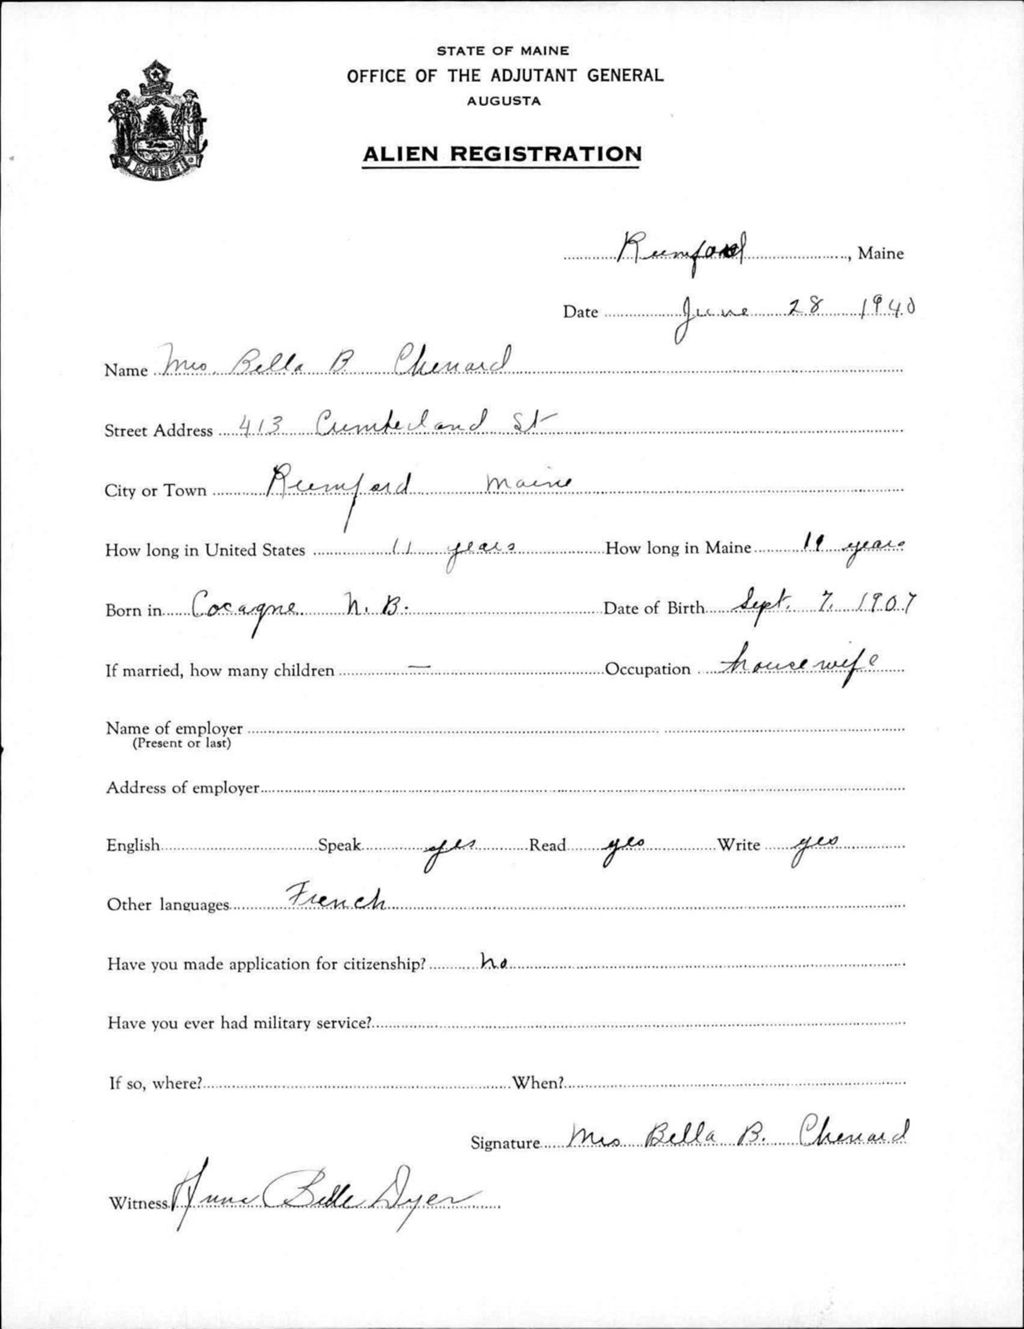 STATE OF MAINE
OFFICE OF THE ADJUTANT GENERAL
AUGUSTA
ALIEN REGISTRATION
MAINE
Rumford, Maine
Date June 28 1940
Name Mrs. Bella B. Chenard
Street Address 413 Cumberland St
City or Town Rumford Maine
How long in United States 11 years How long in Maine 11 years
Born in Cocagne N.B. Date of Birth Sept. 7, 1907
If married, how many children — Occupation housewife
Name of employer
(Present or last)
Address of employer
English Speak yes Read yes Write yes
Other languages French
Have you made application for citizenship? no
Have you ever had military service?
If so, where? When?
Signature Mrs Bella B. Chenard
Witness Anna Belle Dyer